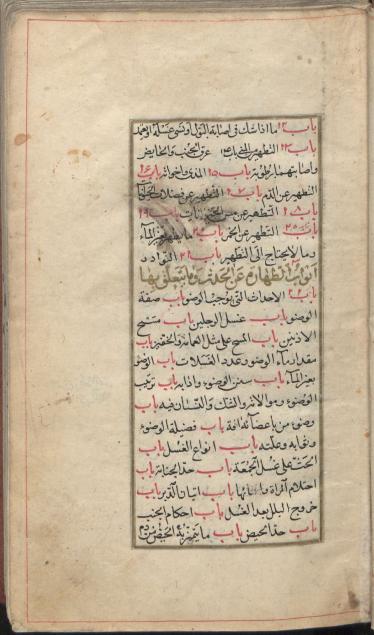 باب ١٢ ما اذا شك فى اصابة البول او نسى غسله او تعمد
باب ١٣ التطهير من المنى باب ١٤ عرق الجنب والحايض
واصابتهما برطوبته باب ١٥ المذى واخواته باب ١٦
التطهير عن الدم باب التطهير عن فضلات
باب ١٨ التطهير عن مس الحيوانات باب ١٩
باب ٢٠ التطهير عن الخمر باب ما يتطهر بغير الماء
وما لا يحتاج الى التطهير باب ٢١ النوادر
ابواب الطهارة عن الحدث وما يتعلق بها
باب ٢٢ الاحداث التى يوجب الوضوء باب صفة
الوضوء باب غسل الرجلين باب مسح
الاذنين باب المسح على مثل العمامة والخف باب
مقدار ماء الوضوء وعدد الغسلات باب الوضوء
بغير الماء باب سنن الوضوء وادابه باب ترتيب
الوضوء وموالاته والشك والنسيان فيه باب
وضوء من باعضائه افة باب فضيلة الوضوء
وثوابه وعلته باب انواع الغسل باب
الحث على غسل الجمعة باب حد الجنابة باب
احتلام المرأة وانزالها باب اتيان الدبر باب
خروج البلل بعد الغسل باب احكام الجنب
باب حد الحيض باب ما يتميز به الحيض من دم